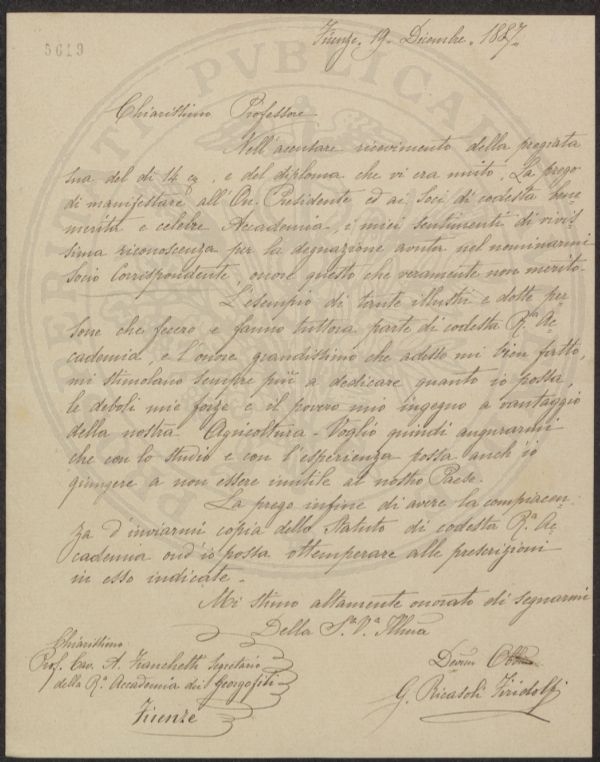 5619
Firenze, 19. Dicembre. 1887.
Chiarissimo Professore
Nell'accusare ricevimento della pregiata
sua del dì 14 c.^e, e del diploma che vi era unito, La prego
di manifestare all'On. Presidente ed ai Soci di codesta bene
merita e celebre Accademia, i miei sentimenti di vivis-
sima riconoscenza per la degnazione avuta nel nominarmi
Socio Corrispondente, onore questo che veramente non merito.
L'esempio di tante illustri e dotte per-
sone che fecero e fanno tuttora parte di codesta R.^a Ac-
cademia, e l'onore grandissimo che adesso mi vien fatto,
mi stimolano sempre più a dedicare quanto io possa,
le deboli mie forze e il povero mio ingegno a vantaggio
della nostra Agricoltura - Voglio quindi augurarmi
che con lo studio e con l'esperienza possa anch'io
giungere a non essere inutile al nostro Paese.
La prego infine di avere la compiacen-
za d'inviarmi copia dello Statuto di codesta R.^a Ac-
cademia ond'io possa ottemperare alle prescrizioni
in esso indicate.
Mi stimo altamente onorato di segnarmi
Della S.^a V.^a Ill̃ma
Chiarissimo
Prof. Cav. A. Zanchetti Segretario
della R.^a Accademia dei Georgofili
Firenze
Devmo
G. Ricasoli Firidolfi